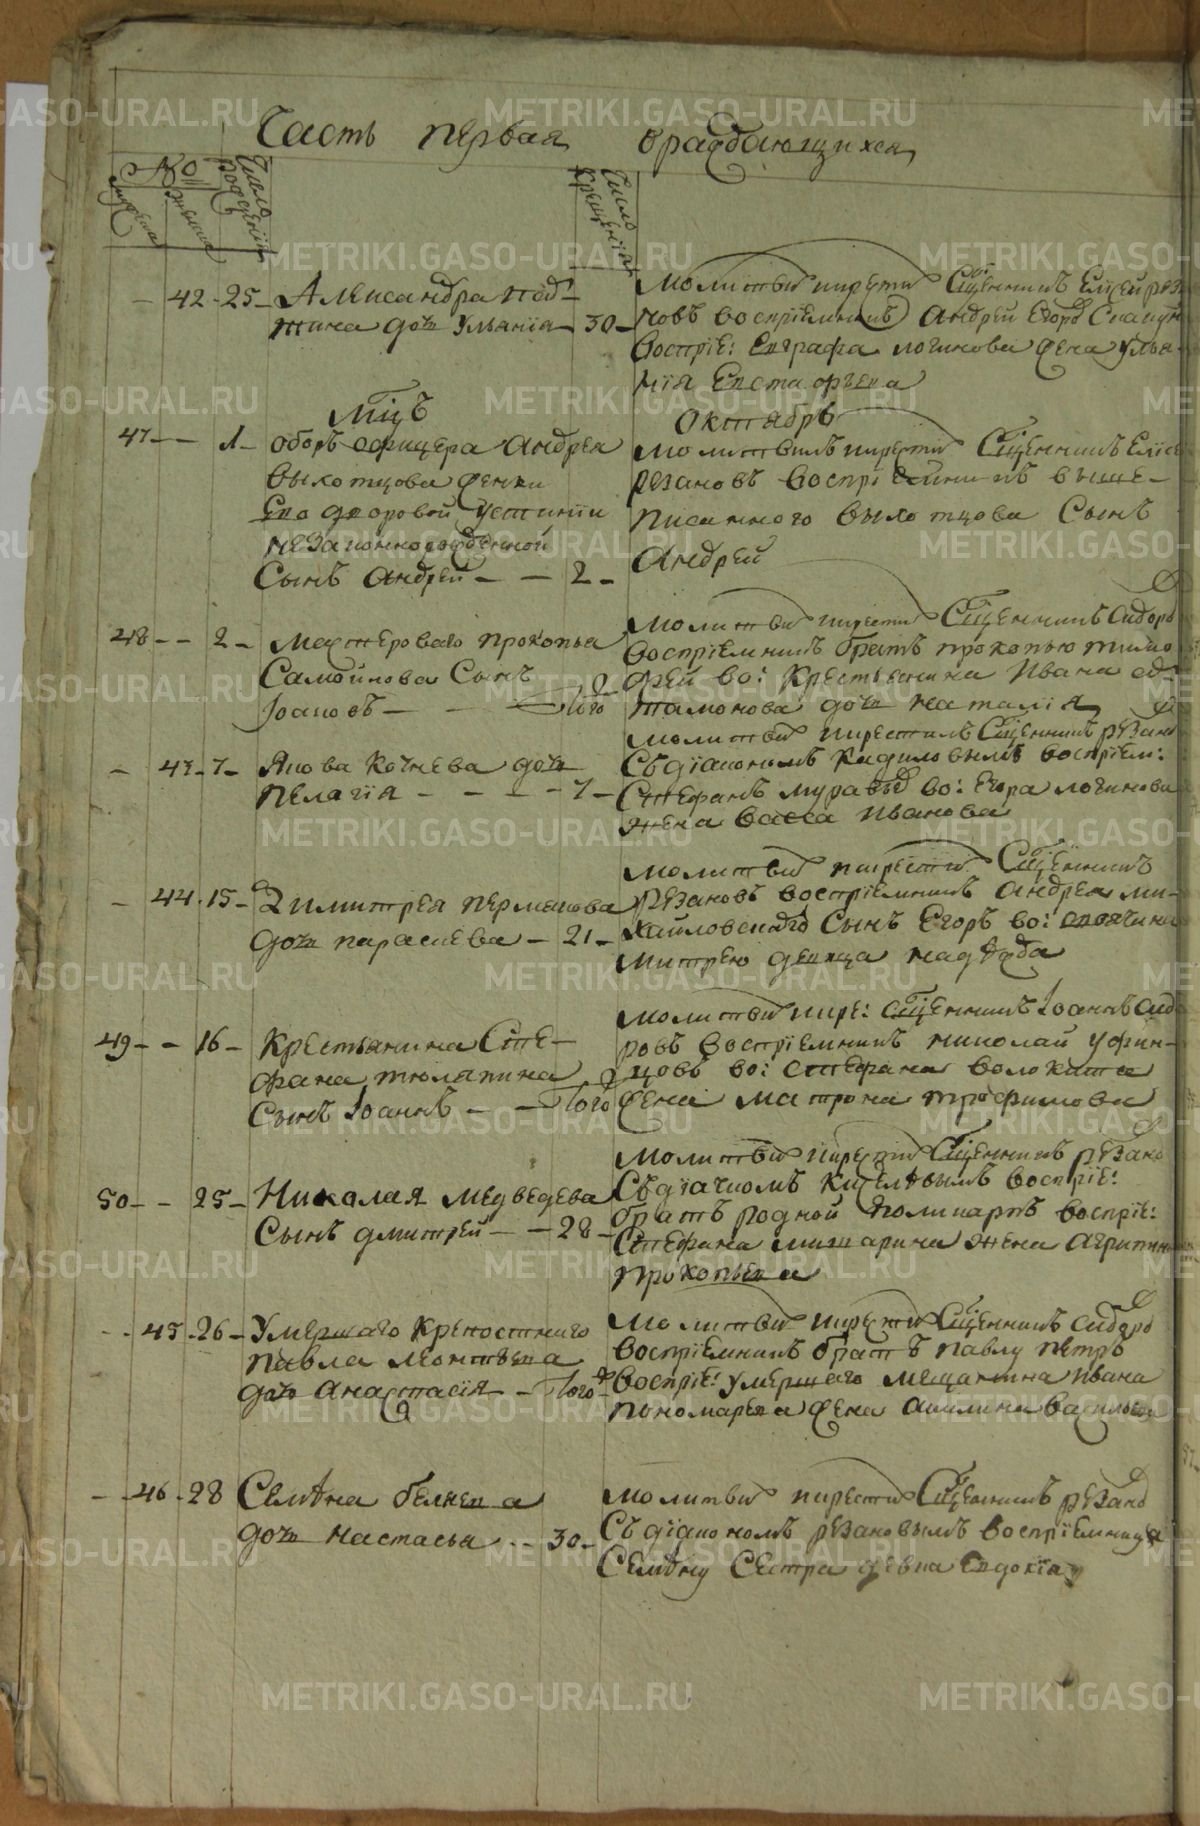 Часть первая ораждающихся
№
Мужеска
Женска
Число рождения
Число крещения
42 - 25 - Александра Под-
дочь Ульянїа - 30 -
Молитви и крести Сщенникъ Елисей Реза
новъ восприемникъ Андрей Егоро
восприе: Евграфа Логинова жена Улья
нїя Евстафьева
Мцъ Октябрь
47 - - 1 - оборъ офицера Андрея
Выхотцова женки
Ево дворовой Устинїи
незаконнорожденной
Сынъ Андрей - - 2 -
Молитвилъ и крести Сщенникъ Елисе
Резановъ воспрїемникъ выше-
писанного Выхотцова Сынъ
Андрей
48 - - 2 - Мастероваго Прокопья
Самойлова Сынъ
Іоаннъ - - Того
Молитви и крести Сщенникъ Сидоро
воспрїемникъ братъ Прокопью Тимо
фей во: Крестьянина Ивана
дочь Наталїя
- 43 - 7 - Якова Кочнева дочь
Пелагїя - - - - 7 -
Молитви и крестилъ Сщенникъ Резано
Съ дїакономъ Кадиловымъ воспрїем:
Стефанъ Муравье во: Егора Логинова
жена Васса Иванова
- 44 - 15 - Димитрея Пермякова
дочь Параскева - 21 -
Молитви и крести Сщенникъ
Резановъ воспрїемникъ Андрея Ми-
хайловскаго Сынъ Егоръ во:
Митрею девица Надѣжда
49 - - 16 - Крестьянина Сте-
фана Тюляпина
Сынъ Іоаннъ - - Того
Молитви и кре: Сщенникъ Іоаннъ Сидо
ровъ воспрїемникъ Николай Уфин-
цовъ во: Стефана Волокита
жена Матрона Трофимова
50 - - 25 - Николая Медведева
Сынъ Дмитрей - - 28 -
Молитви и крести Сщенникъ Резано
Съ дїачкомъ Киселѣвымъ воспрїе:
братъ родной Поликарпъ воспрїе:
Стефана Мишарина жена Агрипин
Прокопьева
- 45 - 26 - Умершаго Крепостнаго
Павла Леонтьева
дочь Анастасїя - Того
Молитви и крести Сщенникъ Сидоро
воспрїемникъ братъ Павлу Петръ
воспрїе: умершаго мещанина Ивана
Пономарева жена Акилина Васильева
- 46 - 28 Семѣна Беляева
дочь Настасья - - 30 -
Молитви и крести Сщенникъ Резано
Съ дїакономъ Резановымъ воспрїемница
Семѣну Сестра девка Евдокїя
METRIKI.GASO-URAL.RU